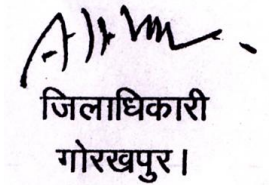 जिलाधिकारी
गोरखपुर।